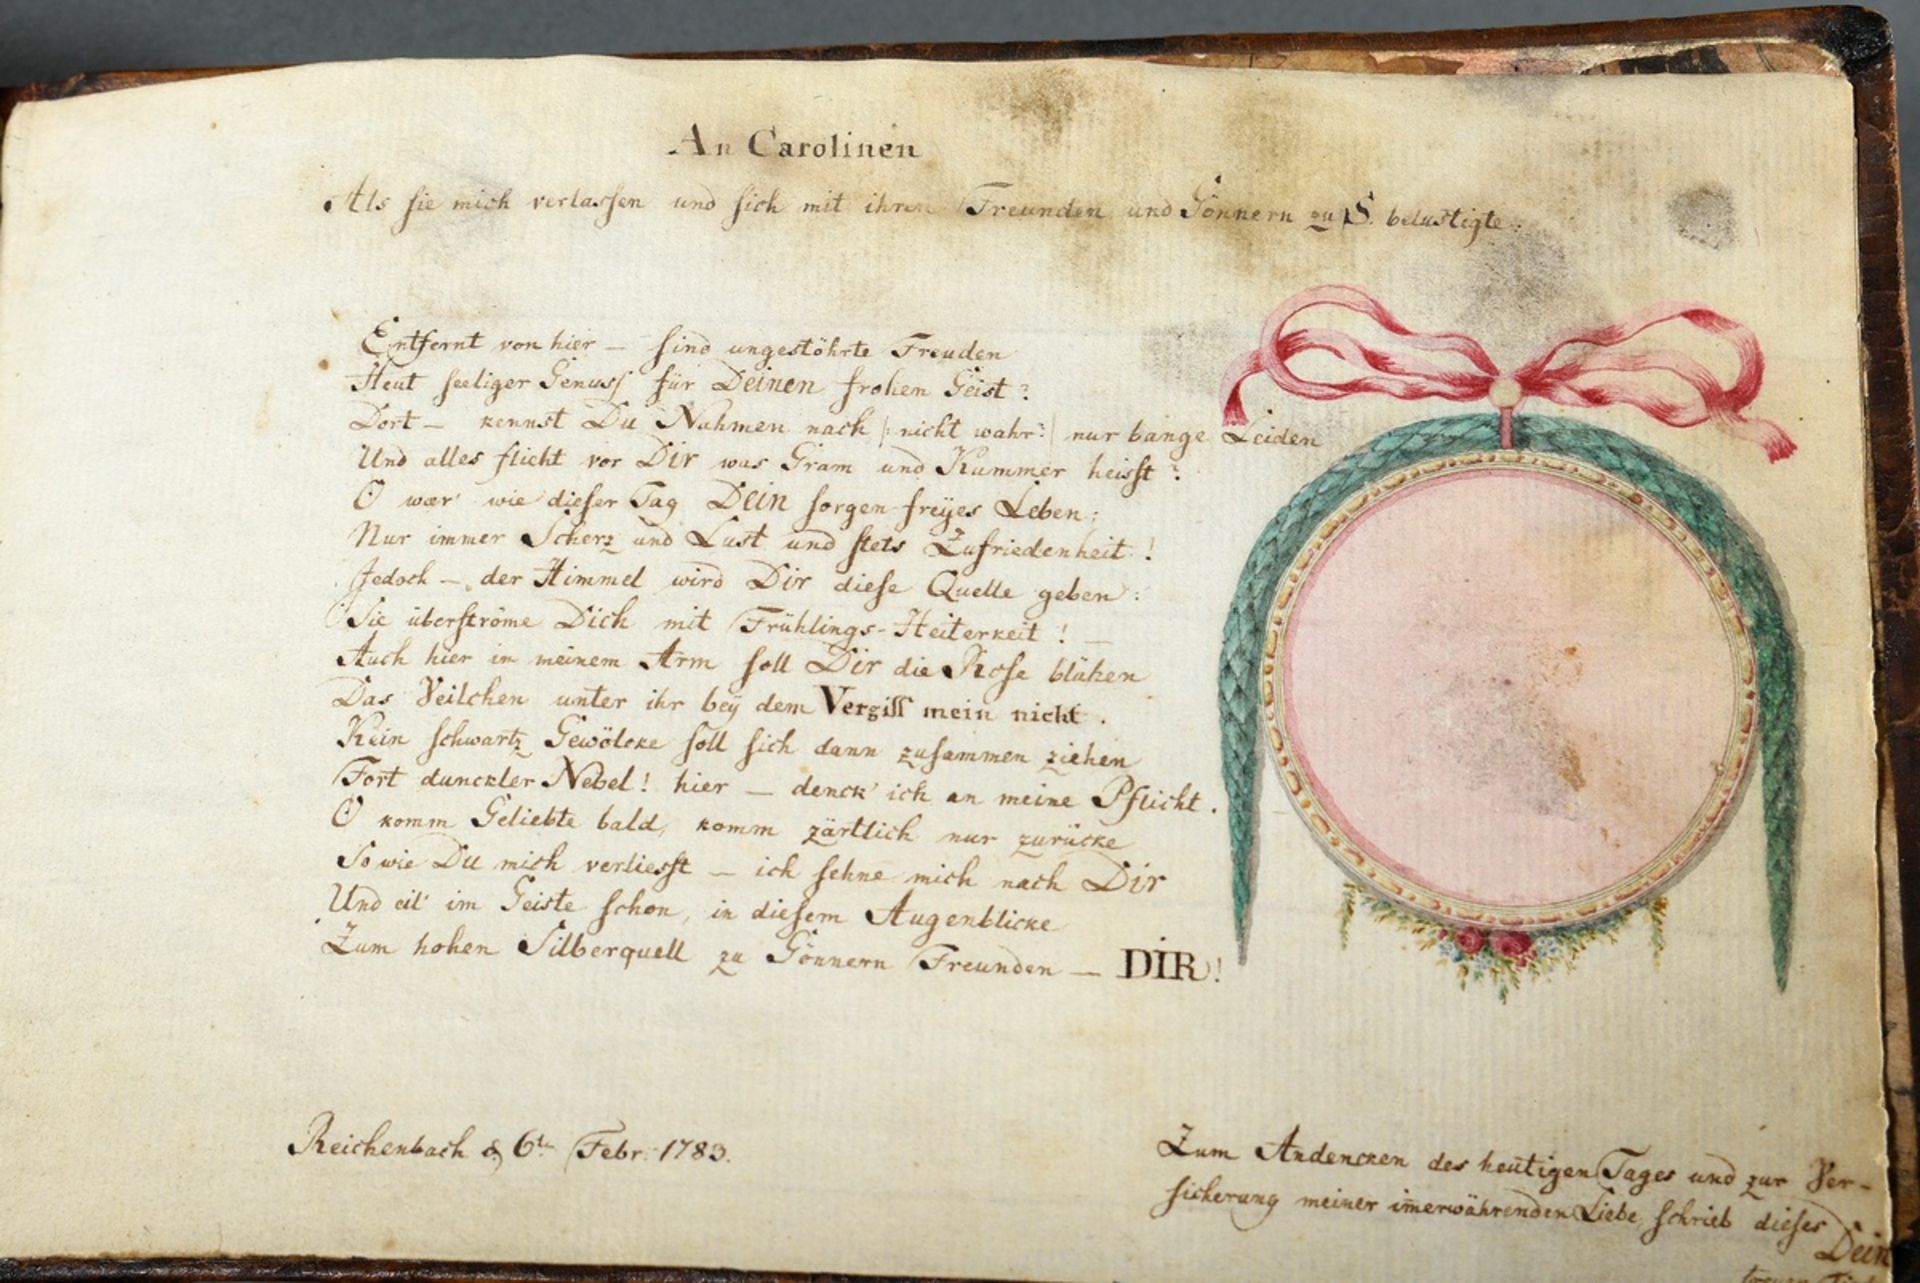 An Carolinen
Als sie mich verlassen und sich mit ihren Freunden und Gönnern zu S. belustigte.
Entfernt von hier — sind ungestöhrte Freuden
Heut seeliger Genuss für Deinen frohen Geist?
Dort — kennst Du Nahmen nach |: nicht wahr? :| nur bange Leiden
Und alles flieht vor Dir was Gram und Kummer heisst?
O wær' wie dieser Tag Dein sorgen-freÿes Leben;
Nur immer Scherz und Lust und stets Zufriedenheit!
Jedoch — der Himmel wird Dir diese Quelle geben:
Sie überströme Dich mit Frühlings-Heiterkeit! —
Auch hier in meinem Arm soll Dir die Rose blühen
Das Veilchen unter ihr beÿ dem Vergiss mein nicht.
Kein schwartz Gewölcke soll sich dann zusammen ziehen
Fort dunckler Nebel! hier — denck' ich an meine Pflicht.
O komm Geliebte bald, komm zärtlich nur zurücke
So wie Du mich verliesst — ich sehne mich nach Dir
Und eil' im Geiste schon, in diesem Augenblicke
Zum hohen Silberquell zu Gönnern Freunden — DIR!
Reichenbach d. 6te Febr. 1783.
Zum Andencken des heutigen Tages und zur Ver-
sicherung meiner im̄erwährenden Liebe, schrieb dieses
Dein